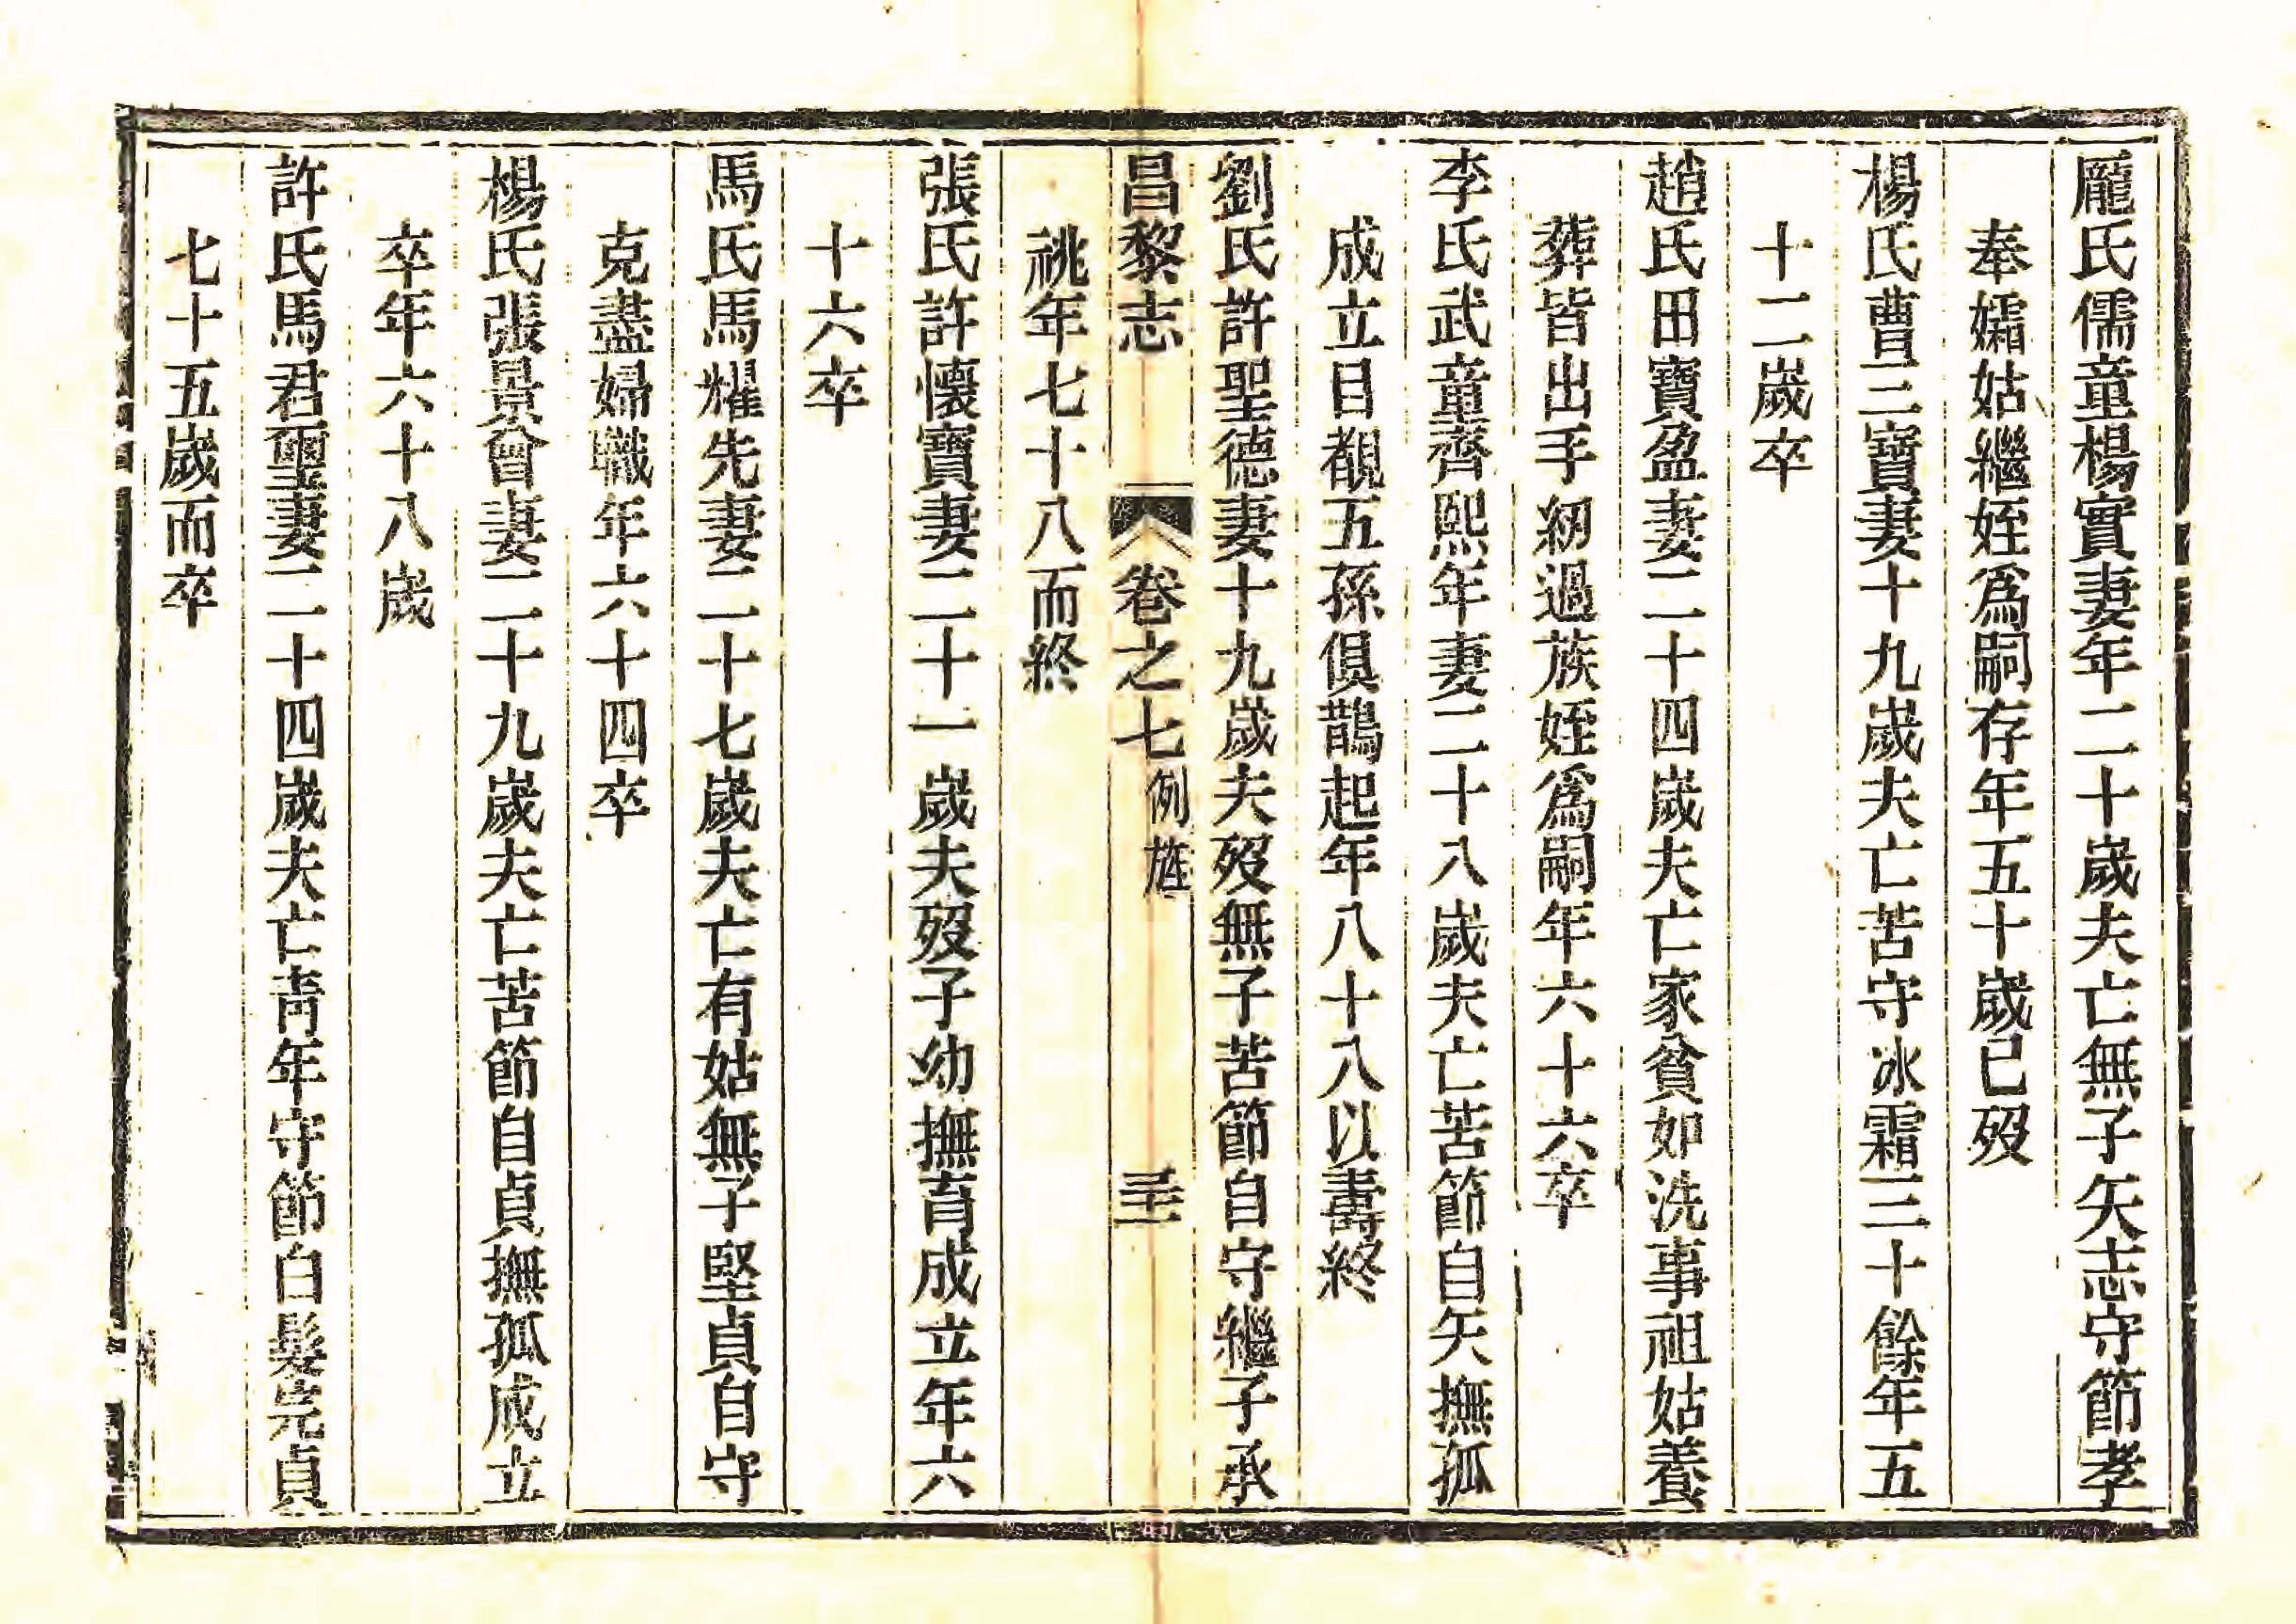 龐氏儒童楊實妻年二十歲夫亡無子矢志守節孝
奉孀姑繼姪爲嗣存年五十歲已歿
楊氏曹三寶妻十九歲夫亡苦守冰霜三十餘年五
十二歲卒
趙氏田寶盈妻二十四歲夫亡家貧如洗事祖姑養
葬皆出手紉過族姪爲嗣年六十六卒
李氏武童齊熙年妻二十八歲夫亡苦節自矢撫孤
成立目覩五孫俱鵲起年八十八以壽終
劉氏許聖德妻十九歲夫歿無子苦節自守繼子承
昌黎志 卷之七 例旌 三十一
祧年七十八而終
張氏許懷寶妻二十一歲夫歿子幼撫育成立年六
十六卒
馬氏馬耀先妻二十七歲夫亡有姑無子堅貞自守
克盡婦職年六十四卒
楊氏張景曾妻二十九歲夫亡苦節自貞撫孤成立
卒年六十八歲
許氏馬君璽妻二十四歲夫亡靑年守節白髮完貞
七十五歲而卒